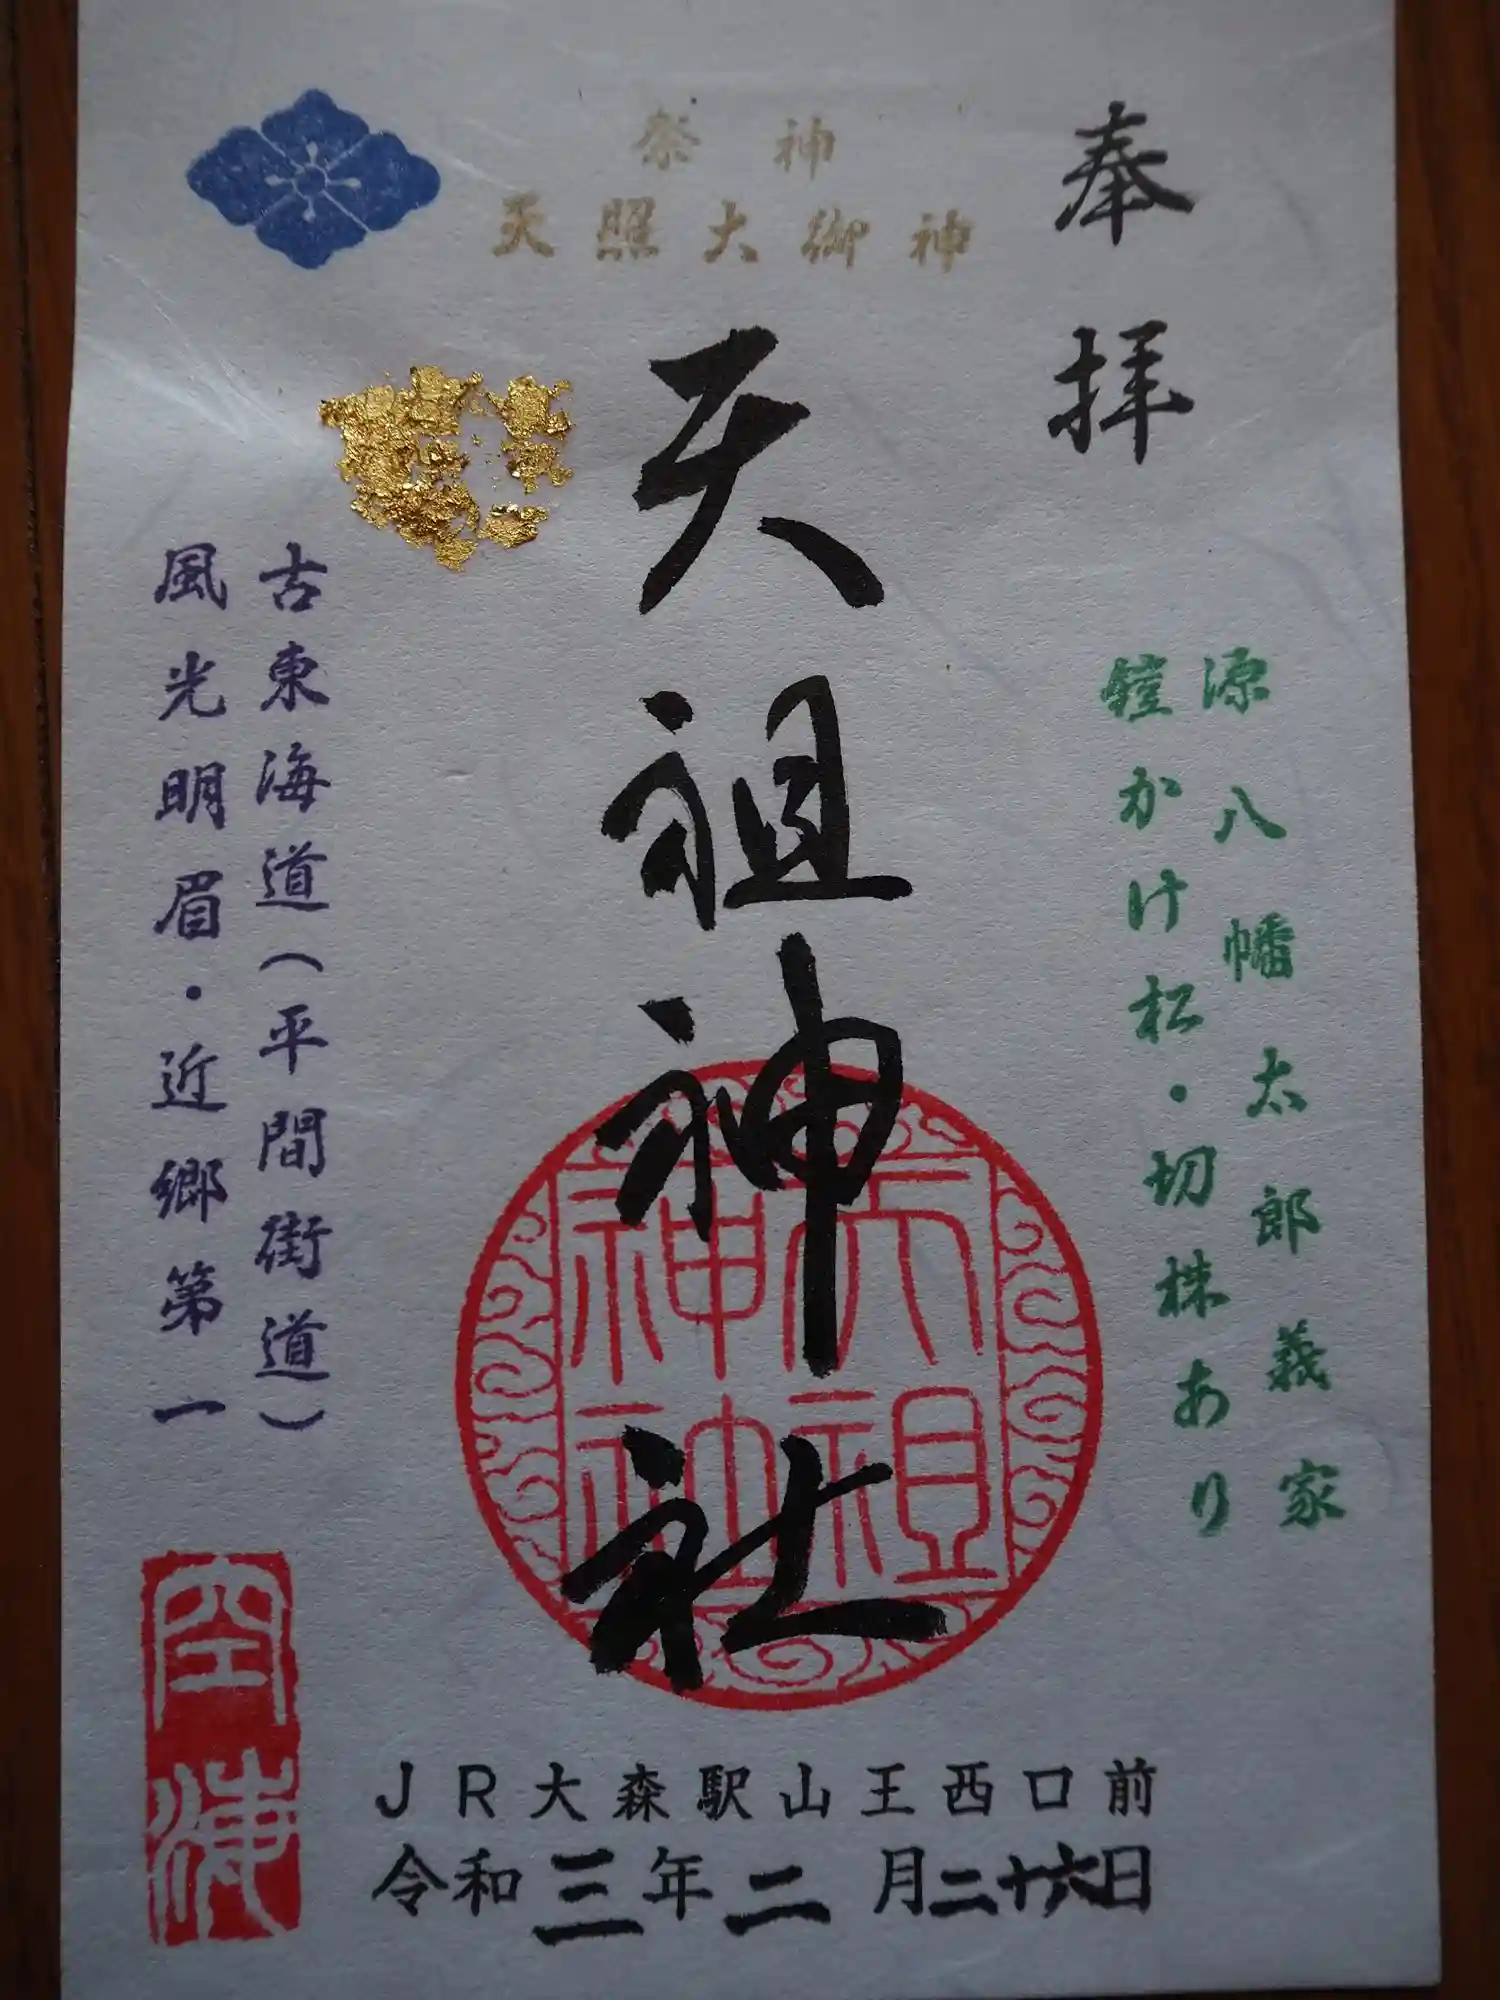 奉拝
祭神
天照大御神
天祖神社
源八幡太郎義家
鎧かけ松・切株あり
古東海道(平間街道)
風光明眉・近郷第一
天祖
神社
JR大森駅山王西口前
令和三年二月二十六日